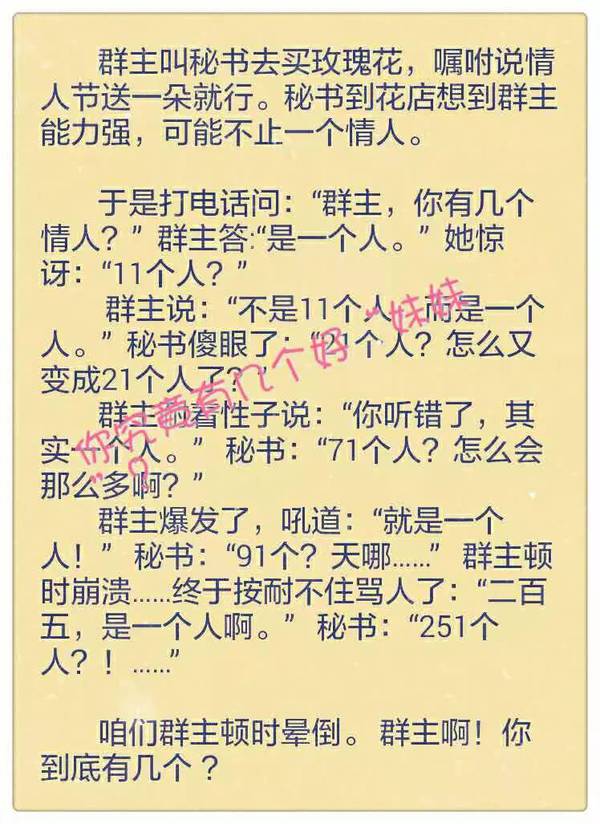 群主叫秘书去买玫瑰花，嘱咐说情
人节送一朵就行。秘书到花店想到群主
能力强，可能不止一个情人。
于是打电话问：“群主，你有几个
情人？”群主答:“是一个人。”她惊
讶：“11个人？”
群主说：“不是11个人，而是一个
人。”秘书傻眼了：“21个人？怎么又
变成21个人了？”
群主耐着性子说：“你听错了，其
实一个人。” 秘书：“71个人？怎么会
那么多啊？”
群主爆发了，吼道：“就是一个
人！” 秘书：“91个？天哪......” 群主顿
时崩溃......终于按耐不住骂人了：“二百
五，是一个人啊。” 秘书：“251个
人？！......”
咱们群主顿时晕倒。群主啊！你
到底有几个？
你究竟有几个好“妹妹
”？